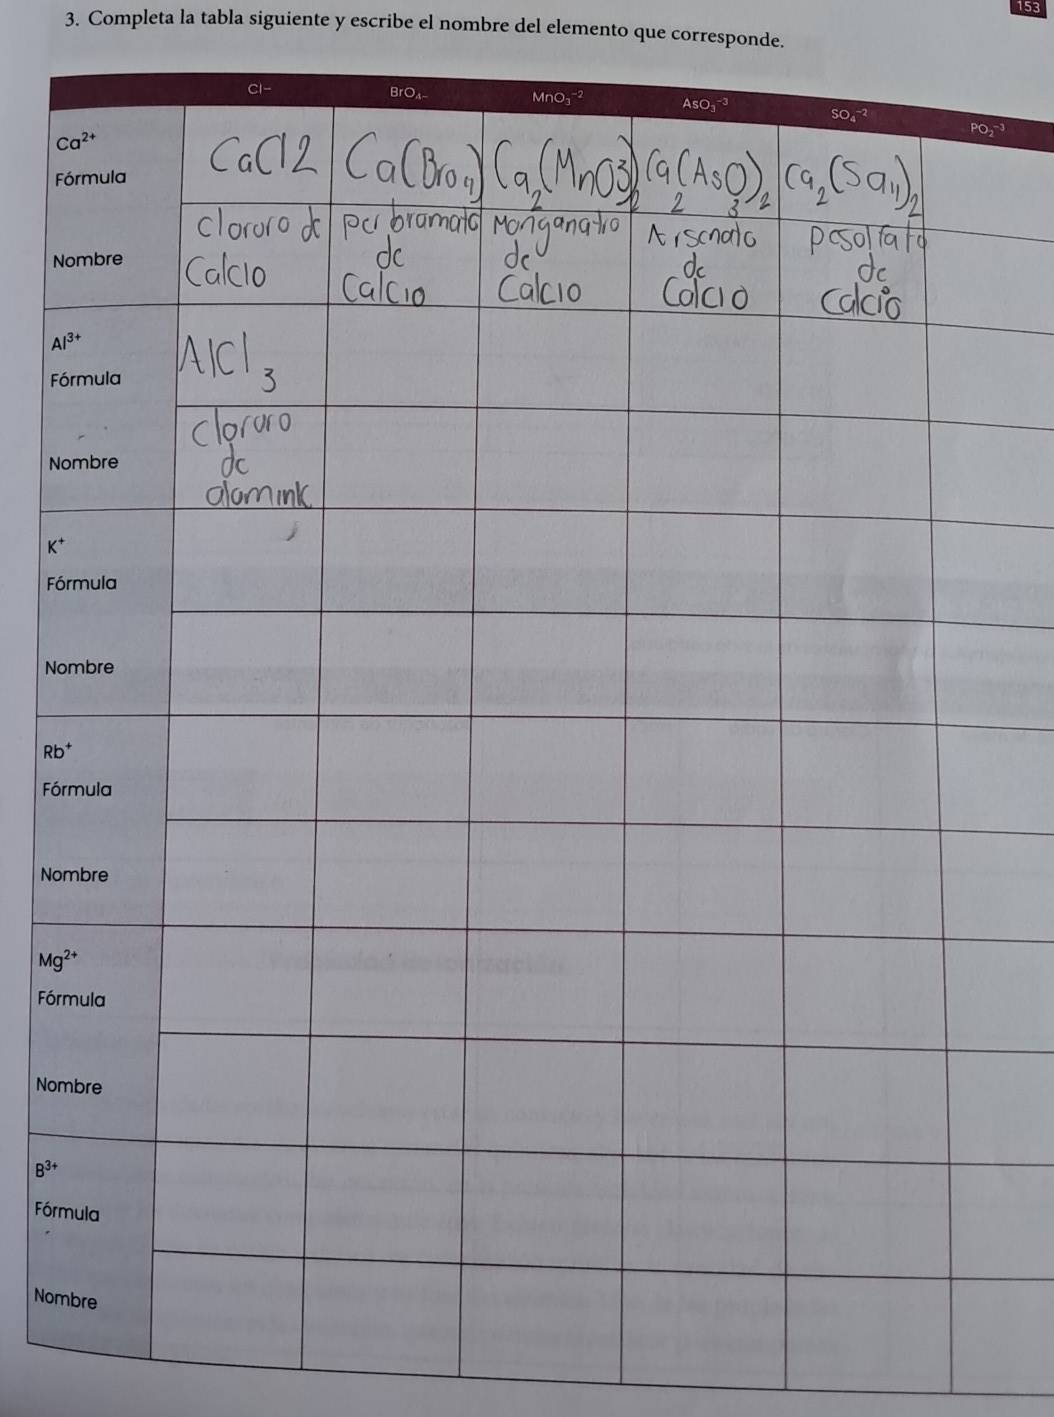 153
3. Completa la tabla siguiente y escribe el nombre del elemento que corresponde.
Cl- BrO₄₋ MnO₃⁻² AsO₃⁻³ SO₄⁻² PO₂⁻³
Ca²⁺
Fórmula CaCl2 Ca(BrO₄) Ca₂(MnO3)₂ Ca₂(AsO₃)₂ Ca₂(SO₄)₂
Nombre Cloruro de Calcio per bromato de Calcio Manganatro de Calcio Arsenato de Calcio pesolfato de calcio
Al³⁺
Fórmula AlCl₃
Nombre Cloruro de alomink
K⁺
Fórmula
Nombre
Rb⁺
Fórmula
Nombre
Mg²⁺
Fórmula
Nombre
B³⁺
Fórmula
Nombre